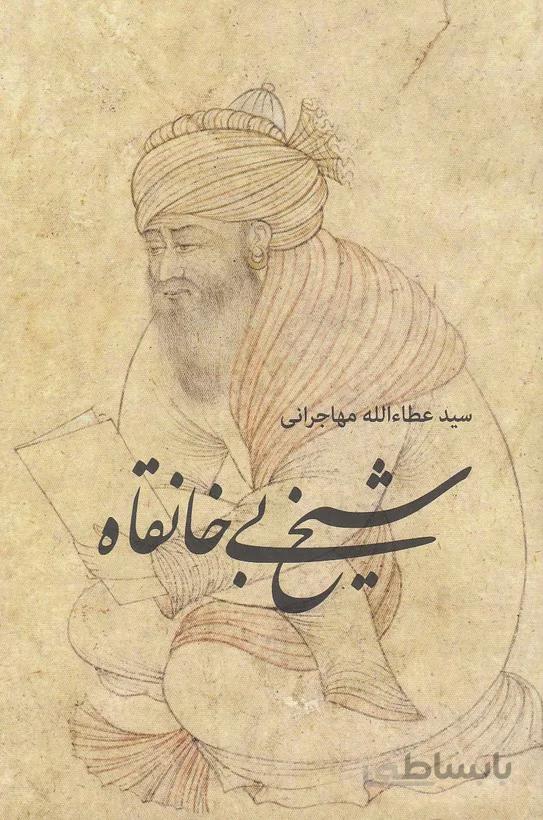 سید عطاءالله مهاجرانی
شیخ بی‌خانقاه
باساطی